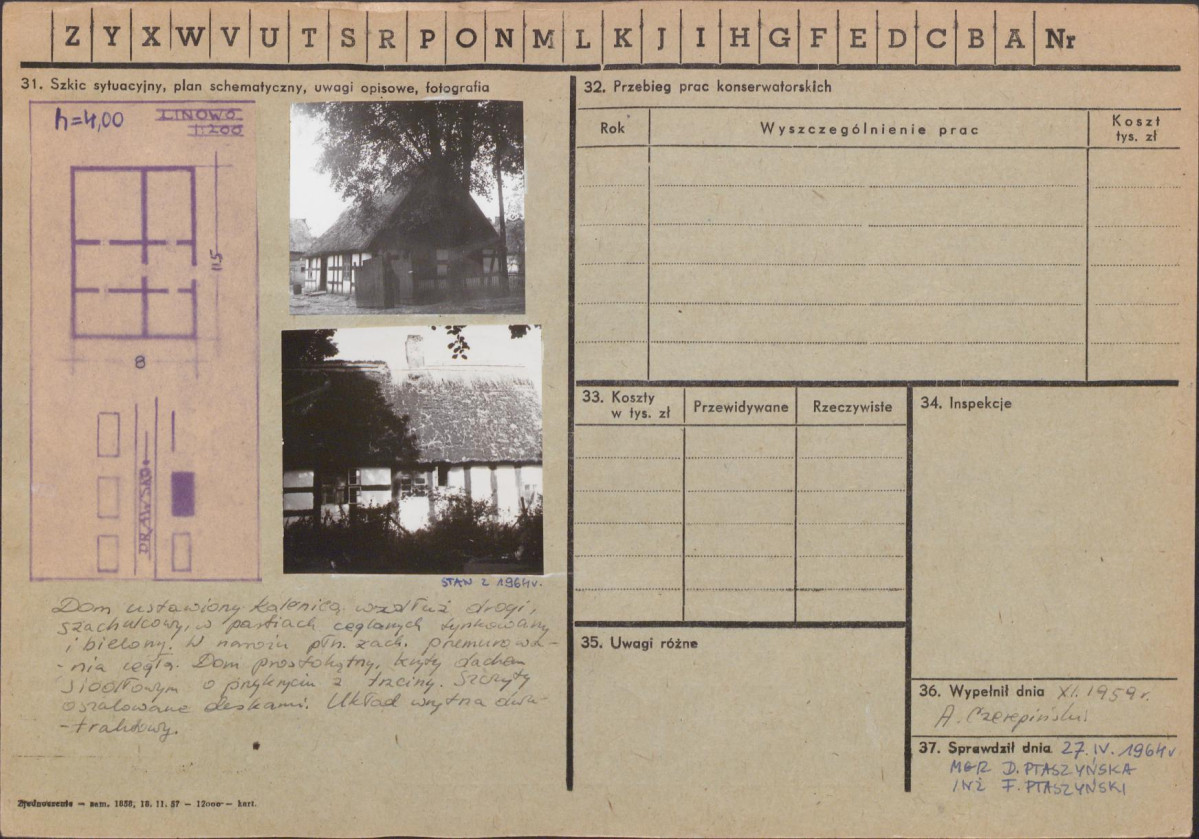 Z Y X W V U T S R P O N M L K J I H G F E D C B A Nr
31. Szkic sytuacyjny, plan schematyczny, uwagi opisowe, fotografia
h=4,00
LINOWO
1:200
11,5
8
DRAWSKO
STAN Z 1964r.
Dom ustawiony kalenicą wzdłuż drogi,
szachulcowy, w partiach ceglanych tynkowany
i bielony. W narożu płn. zach. przemurowa-
-nia cegłą. Dom prostokątny, kryty dachem
siodłowym o przykryciu z trzciny. Szczyty
oszalowane deskami. Układ wnętrza dwu-
-traktowy.
Zjednoczenie — zam. 1858, 10. 11. 57 — 12000 — kart.
32. Przebieg prac konserwatorskich
Rok
Wyszczególnienie prac
Koszt
tys. zł
33. Koszty
w tys. zł
Przewidywane
Rzeczywiste
34. Inspekcje
35. Uwagi różne
36. Wypełnił dnia XI. 1959 r.
A. Czerepiński
37. Sprawdził dnia 27. IV. 1964r
MGR D. PTASZYŃSKA
INŻ F. PTASZYŃSKI